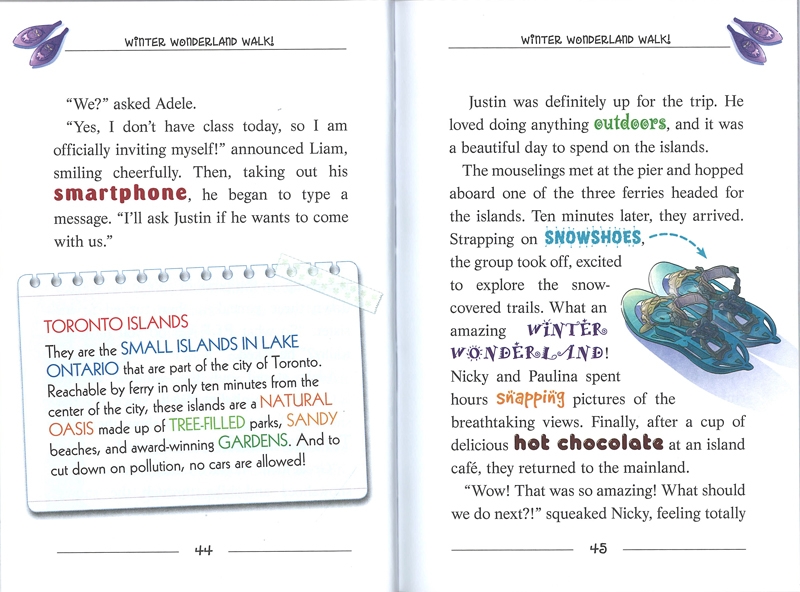 WINTER WONDERLAND WALK!
"We?" asked Adele.
"Yes, I don't have class today, so I am
officially inviting myself!" announced Liam,
smiling cheerfully. Then, taking out his
smartphone, he began to type a
message. "I'll ask Justin if he wants to come
with us."
TORONTO ISLANDS
They are the SMALL ISLANDS IN LAKE
ONTARIO that are part of the city of Toronto.
Reachable by ferry in only ten minutes from the
center of the city, these islands are a NATURAL
OASIS made up of TREE-FILLED parks, SANDY
beaches, and award-winning GARDENS. And to
cut down on pollution, no cars are allowed!
44
WINTER WONDERLAND WALK!
Justin was definitely up for the trip. He
loved doing anything outdoors, and it was
a beautiful day to spend on the islands.
The mouselings met at the pier and hopped
aboard one of the three ferries headed for
the islands. Ten minutes later, they arrived.
Strapping on SNOWSHOES,
the group took off, excited
to explore the snow-
covered trails. What an
amazing WINTER
WONDERLAND!
Nicky and Paulina spent
hours snapping pictures of the
breathtaking views. Finally, after a cup of
delicious hot chocolate at an island
café, they returned to the mainland.
"Wow! That was so amazing! What should
we do next?!" squeaked Nicky, feeling totally
45